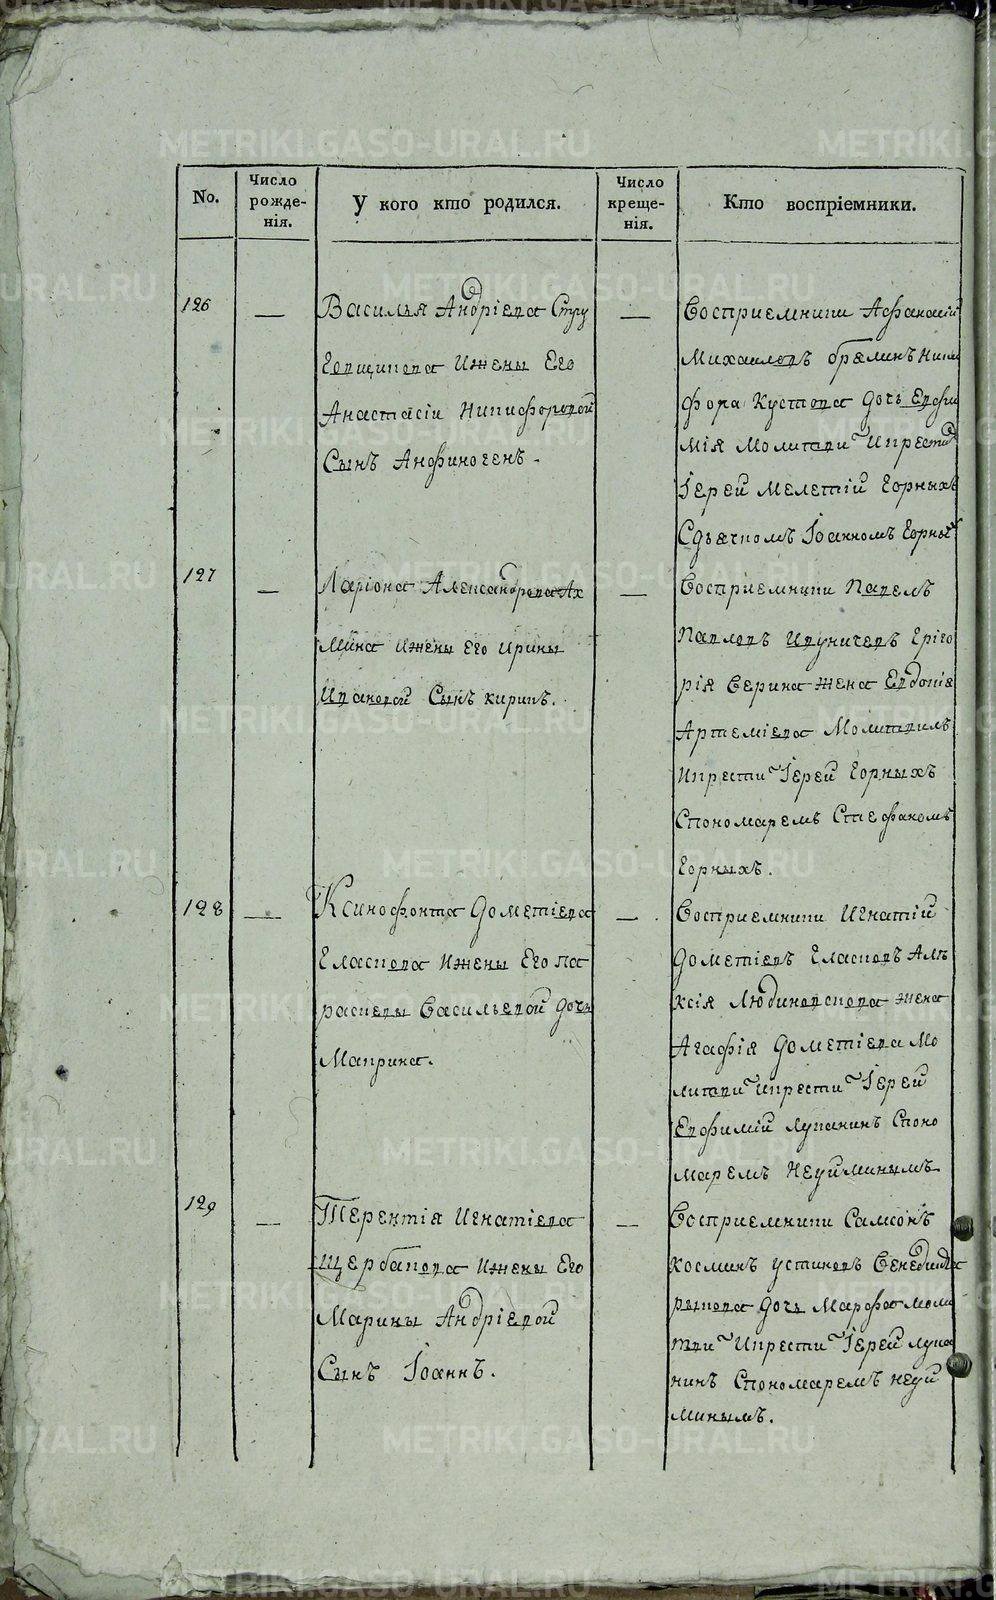 No.
Число рожде-нія.
У кого кто родился.
Число креще-нія.
Кто воспріемники.
126
—
Василья Андріева Стру
говщикова Ижены Его
Анастасіи Никифоровой
Сынъ Анфиногенъ.
—
Восприемники Афанасій
Михаиловъ Ники
фора Кустова дочь Евфи
мія Молитви Ипрести
Іерей Мелетій Горныхъ
Сдьячкомъ Іоанномъ Горны
127
—
Ларіона Александрова Ах
мина Ижены Его Ирины
Ивановой Сынъ кирикъ.
—
Восприемники Павелъ
Павловъ Грiго
рія Верина жена Евдокія
Артеміева Молитвилъ
Ипрести Іерей Горныхъ
Спономаремъ Стефаномъ
Горныхъ.
128
—
Ксинофонта Дометіева
Гласкова Ижены Его Па
раскевы Васильевой дочь
Маврина.
—
Восприемники Игнатій
Дометіевъ Гласковъ Алѣ
ксія жена
Агафія Дометіева Мо
литви Ипрести Іерей
Евфимій Луканинъ Споно
маремъ Неуйминымъ
129
—
Терентія Игнатіева
Щербакова Ижены Его
Марины Андріевой
Сынъ Іоаннъ.
—
Восприемники Самсонъ
Косминъ Устиновъ Венедикта
рыкова дочь Марфа моли
тви Ипрести Іерей Лука
нинъ Спономаремъ неуй
минымъ.
METRIKI.GASO-URAL.RU